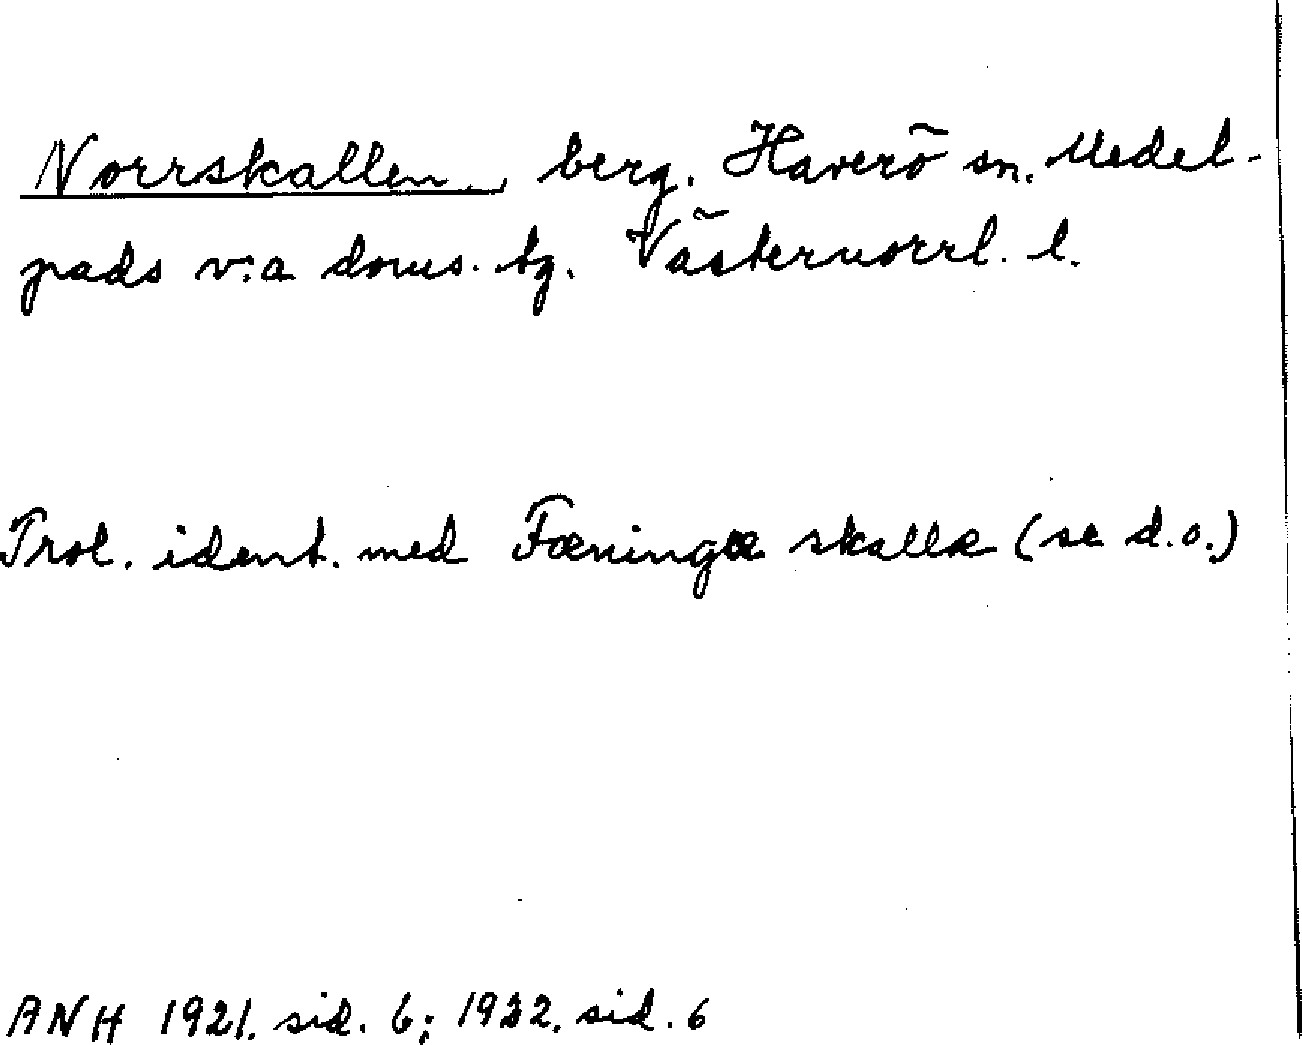 Norrskallen, berg. Haverö sn. Medel-
pads v:a doms. tg. Västernorrl. l.
Trol. ident. med Fæningæ skallæ (se d.o.)
ANH 1921. sid. 6; 1922. sid. 6